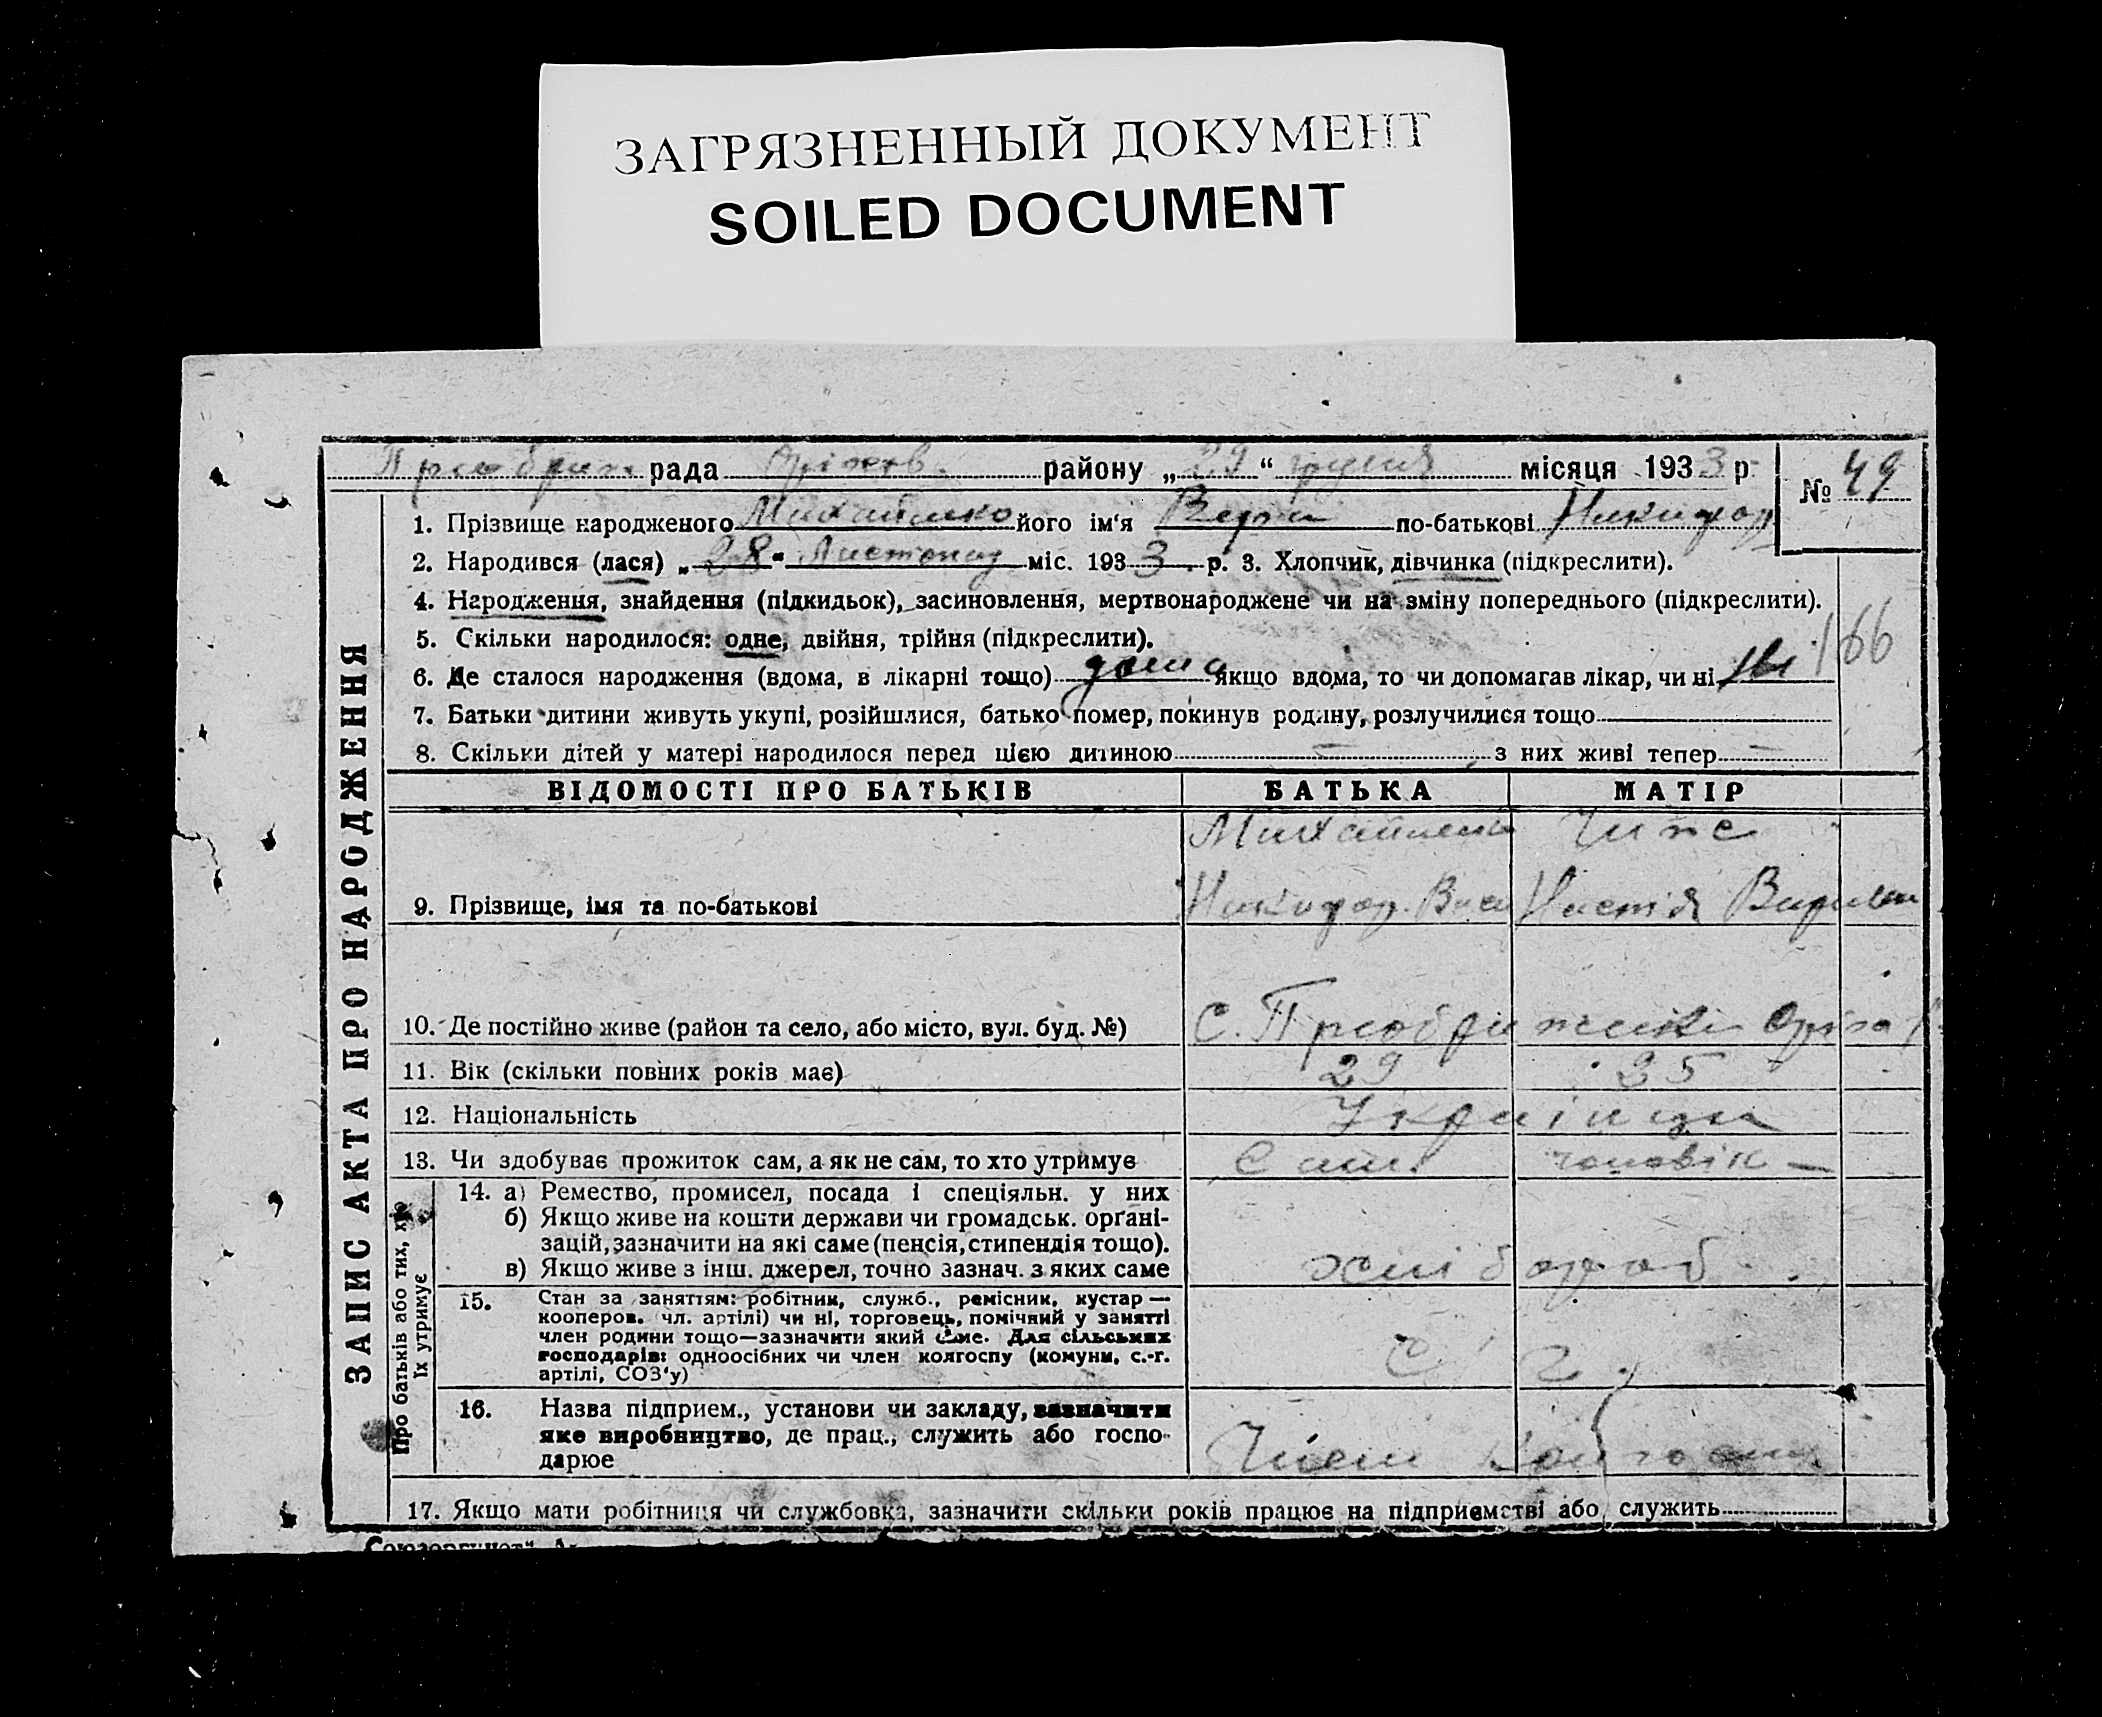 ЗАГРЯЗНЕННЫЙ ДОКУМЕНТ
SOILED DOCUMENT
рада району „29“ грудня місяця 1933 р
№ 49
1. Прізвище народженого Михайленко його ім‘я Вера по-батькові Никифор
2. Народився (лася) „28“ Листопад міс. 1933 р. 3. Хлопчик, дівчинка (підкреслити).
4. Народження, знайдення (підкидьок), засиновлення, мертвонароджене чи на зміну попереднього (підкреслити).
5. Скільки народилося: одне, двійня, трійня (підкреслити).
166
6. Де сталося народження (вдома, в лікарні тощо) дома якщо вдома, то чи допомагав лікар, чи ні ні
7. Батьки дитини живуть укупі, розійшлися, батько помер, покинув родину, розлучилися тощо
8. Скільки дітей у матері народилося перед цією дитиною — з них живі тепер —
ВІДОМОСТІ ПРО БАТЬКІВ БАТЬКА МАТІР
Михайленко
9. Прізвище, імя та по-батькові Никифор Настія
10. Де постійно живе (район та село, або місто, вул. буд. №) С.
11. Вік (скільки повних років має) 29 35
12. Національність Українци
13. Чи здобуває прожиток сам, а як не сам, то хто утримує Сам. чоловік —
ЗАПИС АКТА ПРО НАРОДЖЕННЯ
Про батьків або тих, хто
їх утримує
14. а) Ремество, промисел, посада і спеціяльн. у них
б) Якщо живе на кошти держави чи громадськ. орґані-
зацій, зазначити на які саме (пенсія, стипендія тощо).
в) Якщо живе з інш. джерел, точно зазнач. з яких саме хлібороб
15. Стан за заняттям: робітник, служб., ремісник, кустар —
кооперов. чл. артілі) чи ні, торговець, помічний у занятті
член родини тощо—зазначити який саме. Для сільських
господарів: одноосібних чи член колгоспу (комуни, с.-г.
артілі, СОЗ‘у) С Г
16. Назва підприєм., установи чи закладу, зазначити
яке виробництво, де прац., служить або госпо-
дарює Член
17. Якщо мати робітниця чи службовка, зазначити скільки років працює на підприємстві або служить